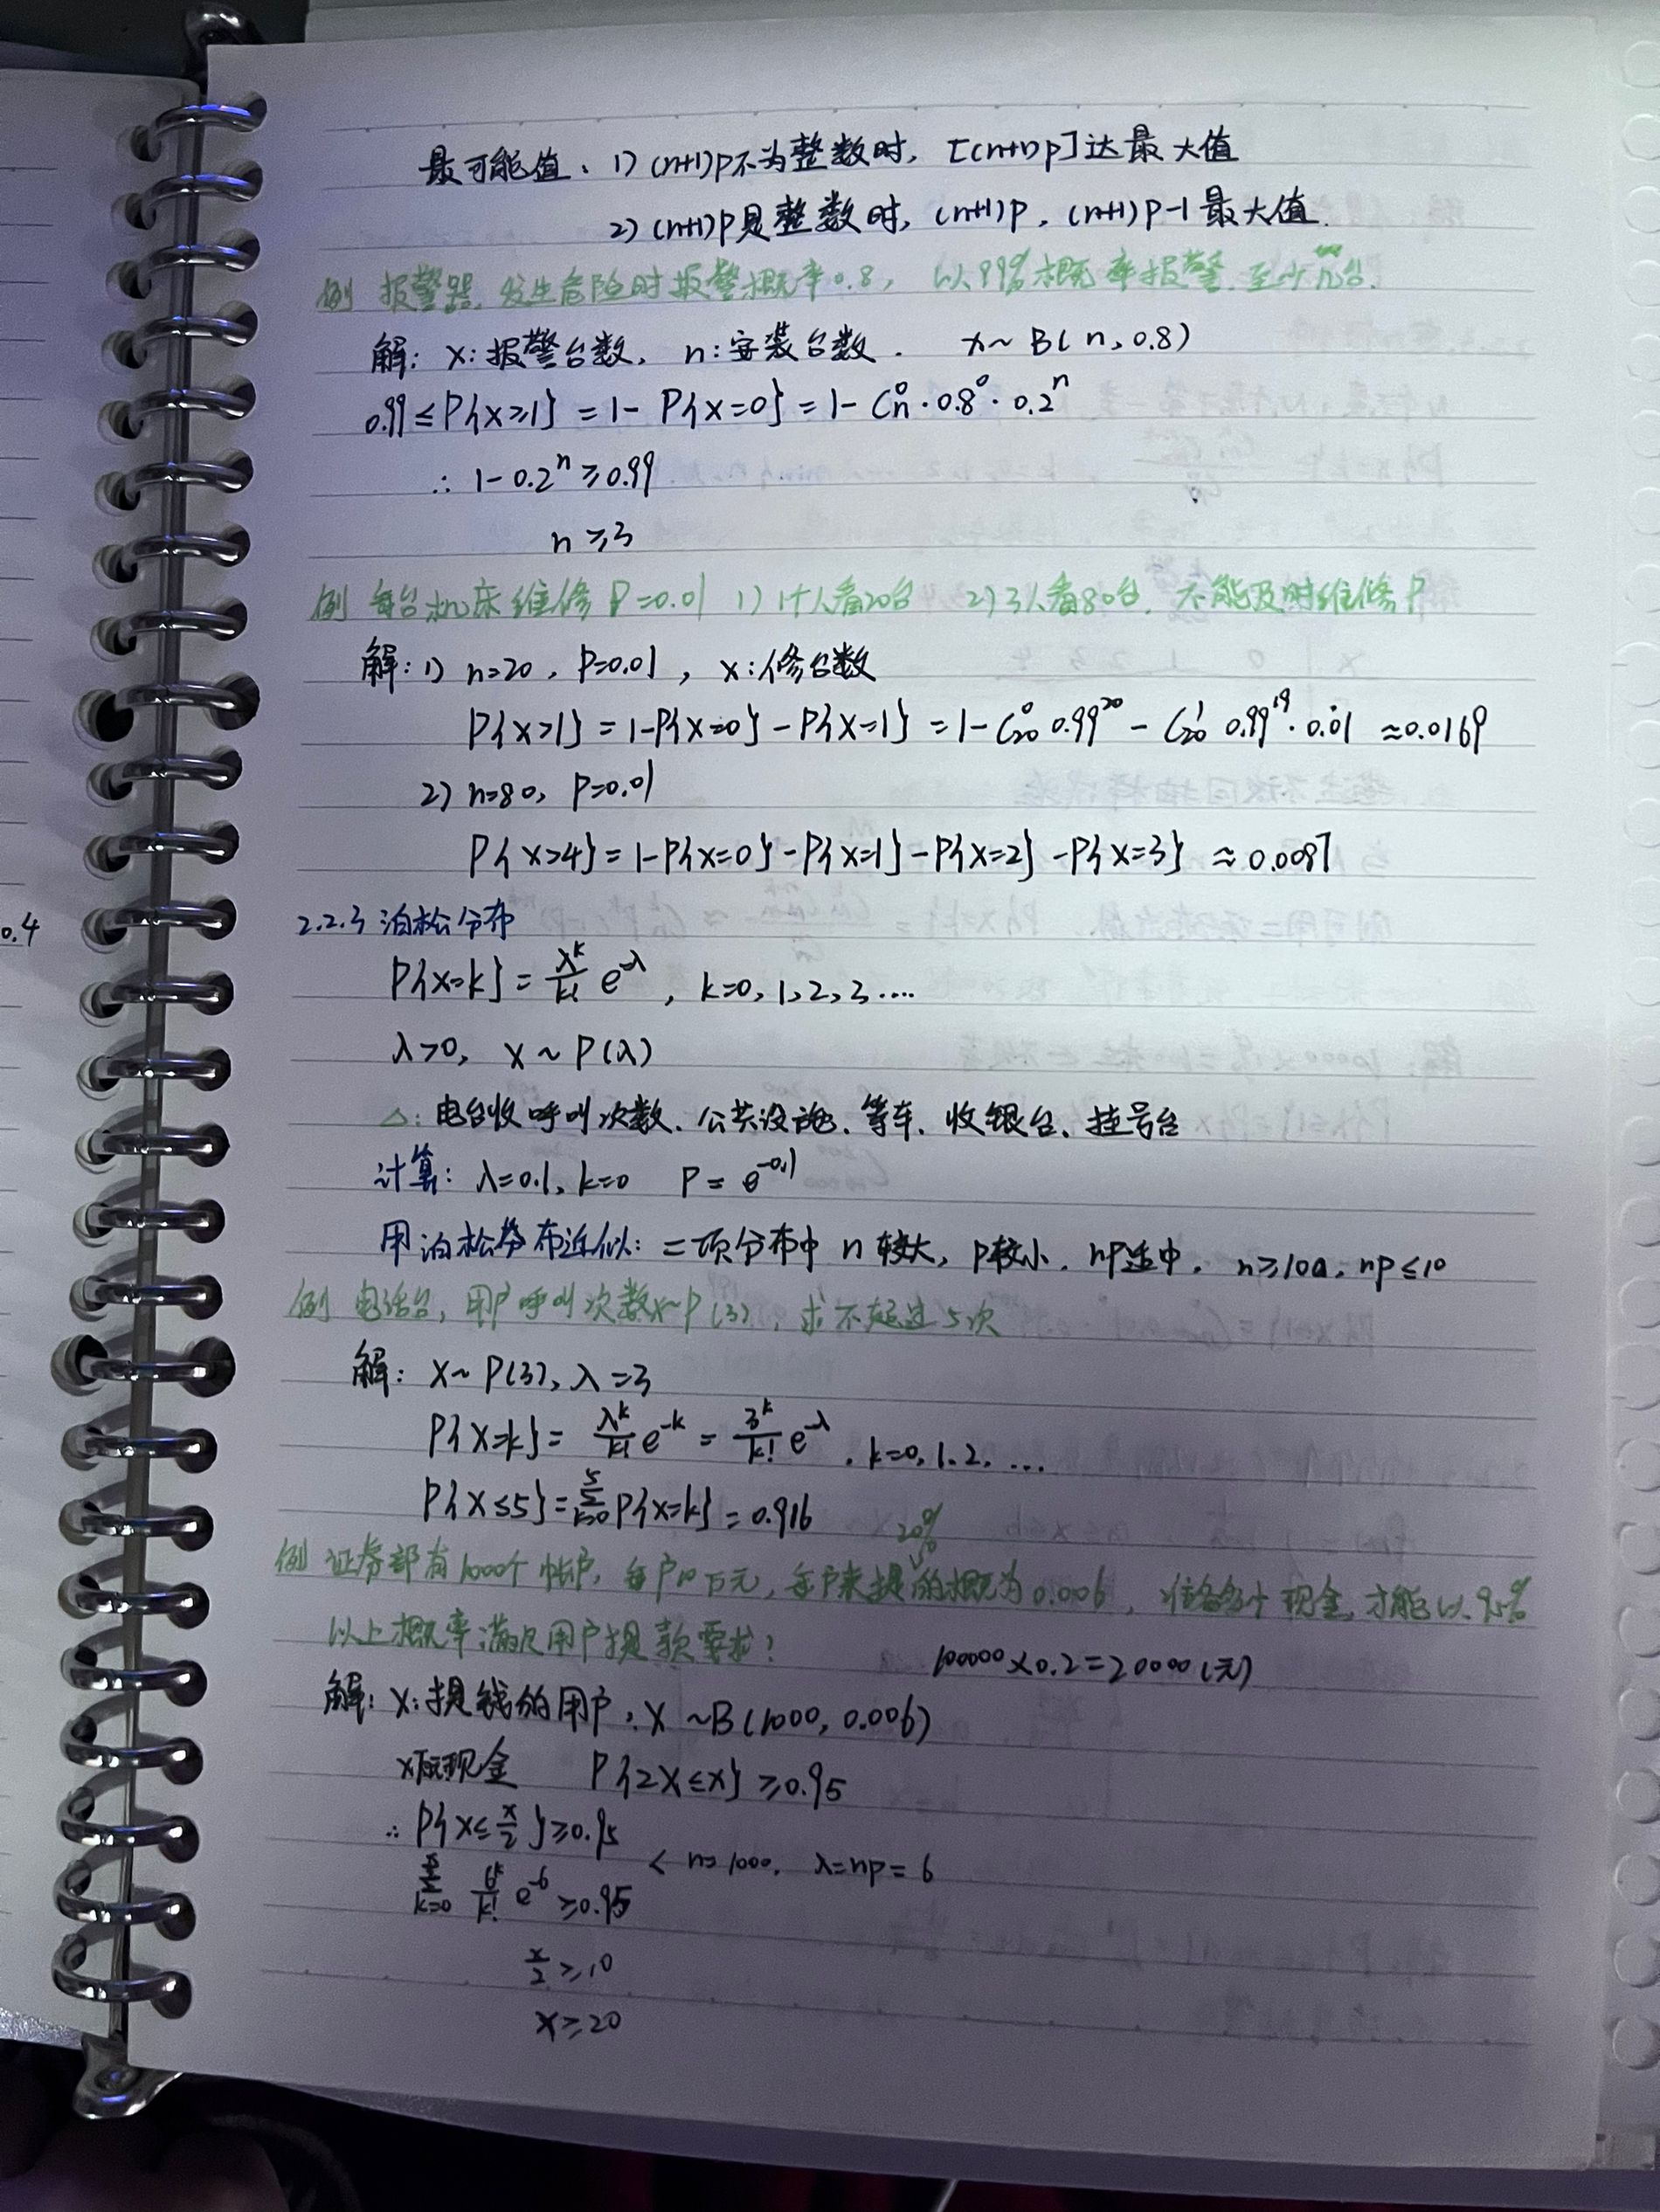 最可能值、1) (n+1)p不为整数时, [(n+1)p]达最大值
2) (n+1)p是整数时, (n+1)p, (n+1)p-1最大值.
例 报警器, 发生危险时报警概率0.8, 以99%概率报警, 至少几台.
解: X:报警台数, n:安装台数. X~B(n,0.8)
0.99≤P{X≥1}=1-P{X=0}=1-C_n^0·0.8^0·0.2^n
∴ 1-0.2^n≥0.99
n≥3
例 每台机床维修P=0.01 1) 1个人看20台 2) 3人看80台. 不能及时维修P
解: 1) n=20, P=0.01, X:修台数
P{X>1}=1-P{X=0}-P{X=1}=1-C_20^0 0.99^20-C_20^1 0.99^19·0.01≈0.0169
2) n=80, P=0.01
P{X>4}=1-P{X=0}-P{X=1}-P{X=2}-P{X=3}≈0.0087
0.4
2.2.3 泊松分布
P{X=k}=λ^k/k! e^-λ, k=0,1,2,3....
λ>0, X~P(λ)
△:电台收呼叫次数、公共设施、等车、收银台、挂号台
计算: λ=0.1, k=0 P=e^-0.1
用泊松分布近似: 二项分布中 n较大, p较小, np适中. n≥100, np≤10
例 电话台, 用户呼叫次数X~P(3), 求不超过5次
解: X~P(3), λ=3
P{X=k}=λ^k/k! e^-k=3^k/k! e^-λ, k=0,1.2,...
P{X≤5}=Σ_{k=0}^5 P{X=k}=0.916
20%
例 证券部有1000个帐户, 每户10万元, 每户来提的概为0.006, 准备多少现金, 才能以95%
以上概率满足用户提款要求?
100000×0.2=20000(元)
解: X:提钱的用户, X~B(1000, 0.006)
x万元现金 P{2X≤x}≥0.95
∴ P{X≤x/2}≥0.95
Σ_{k=0}^{x/2} 6^k/k! e^-6≥0.95 < n=1000, λ=np=6
x/2≥10
x≥20